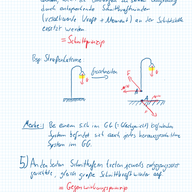 durch entsprechende Schnittkraftwinder
(resultierende Kraft + Moment) an der Schnittstelle
ersetzt werden.
= Schnittprinzip
Bsp Straßenlaterne:
Freischneiden
Merke: Bei einem sich im GG (Gleichgewicht) befindenden
System befindet sich auch jedes herausgeschnittene
System im GG.
5) An den beiden Schnittufern treten jeweils entgegengesetzt
gerichtete, gleich große Schnittkräfte auf
= Gegenwirkungsprinzip